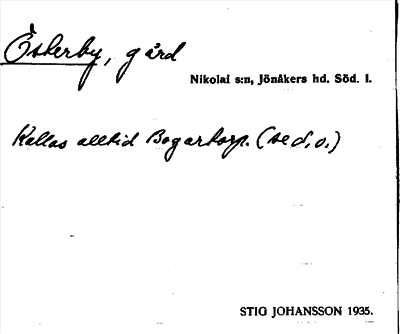 Österby, gård
Nikolai s:n, Jönåkers hd. Söd. l.
Kallas alltid Bogartorp. (se d.o.)
STIG JOHANSSON 1935.